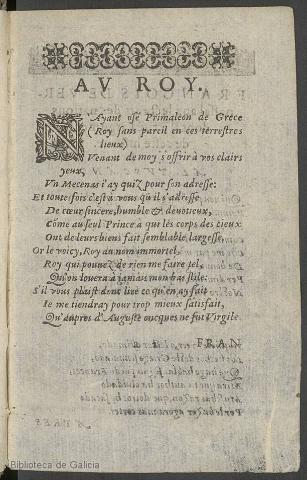 AV ROY.
N'Ayant osé Primaleon de Grece
(Roy sans pareil en ces terrestres
lieux)
Venant de moy s'offrir à vos clairs
yeux,
Vn Mecenas i'ay quiz pour son adresse:
Et toutefois c'est à vous qu'il s'adresse
De cœur sincere, humble & deuotieux,
Cōme au seul Prince à qui les corps des cieux
Ont de leurs biens fait semblable largesse,
Or le voicy, Roy au nom immortel,
Roy qui pouuez de rien me faire tel,
Qu'on louera à iamais mon bas stile:
S'il vous plaist donc lire ce qu'en ay fait
Ie me tiendray pour trop mieux satisfait,
Qu'aupres d'Auguste oncques ne fut Virgile.
FRAN
Biblioteca de Galicia